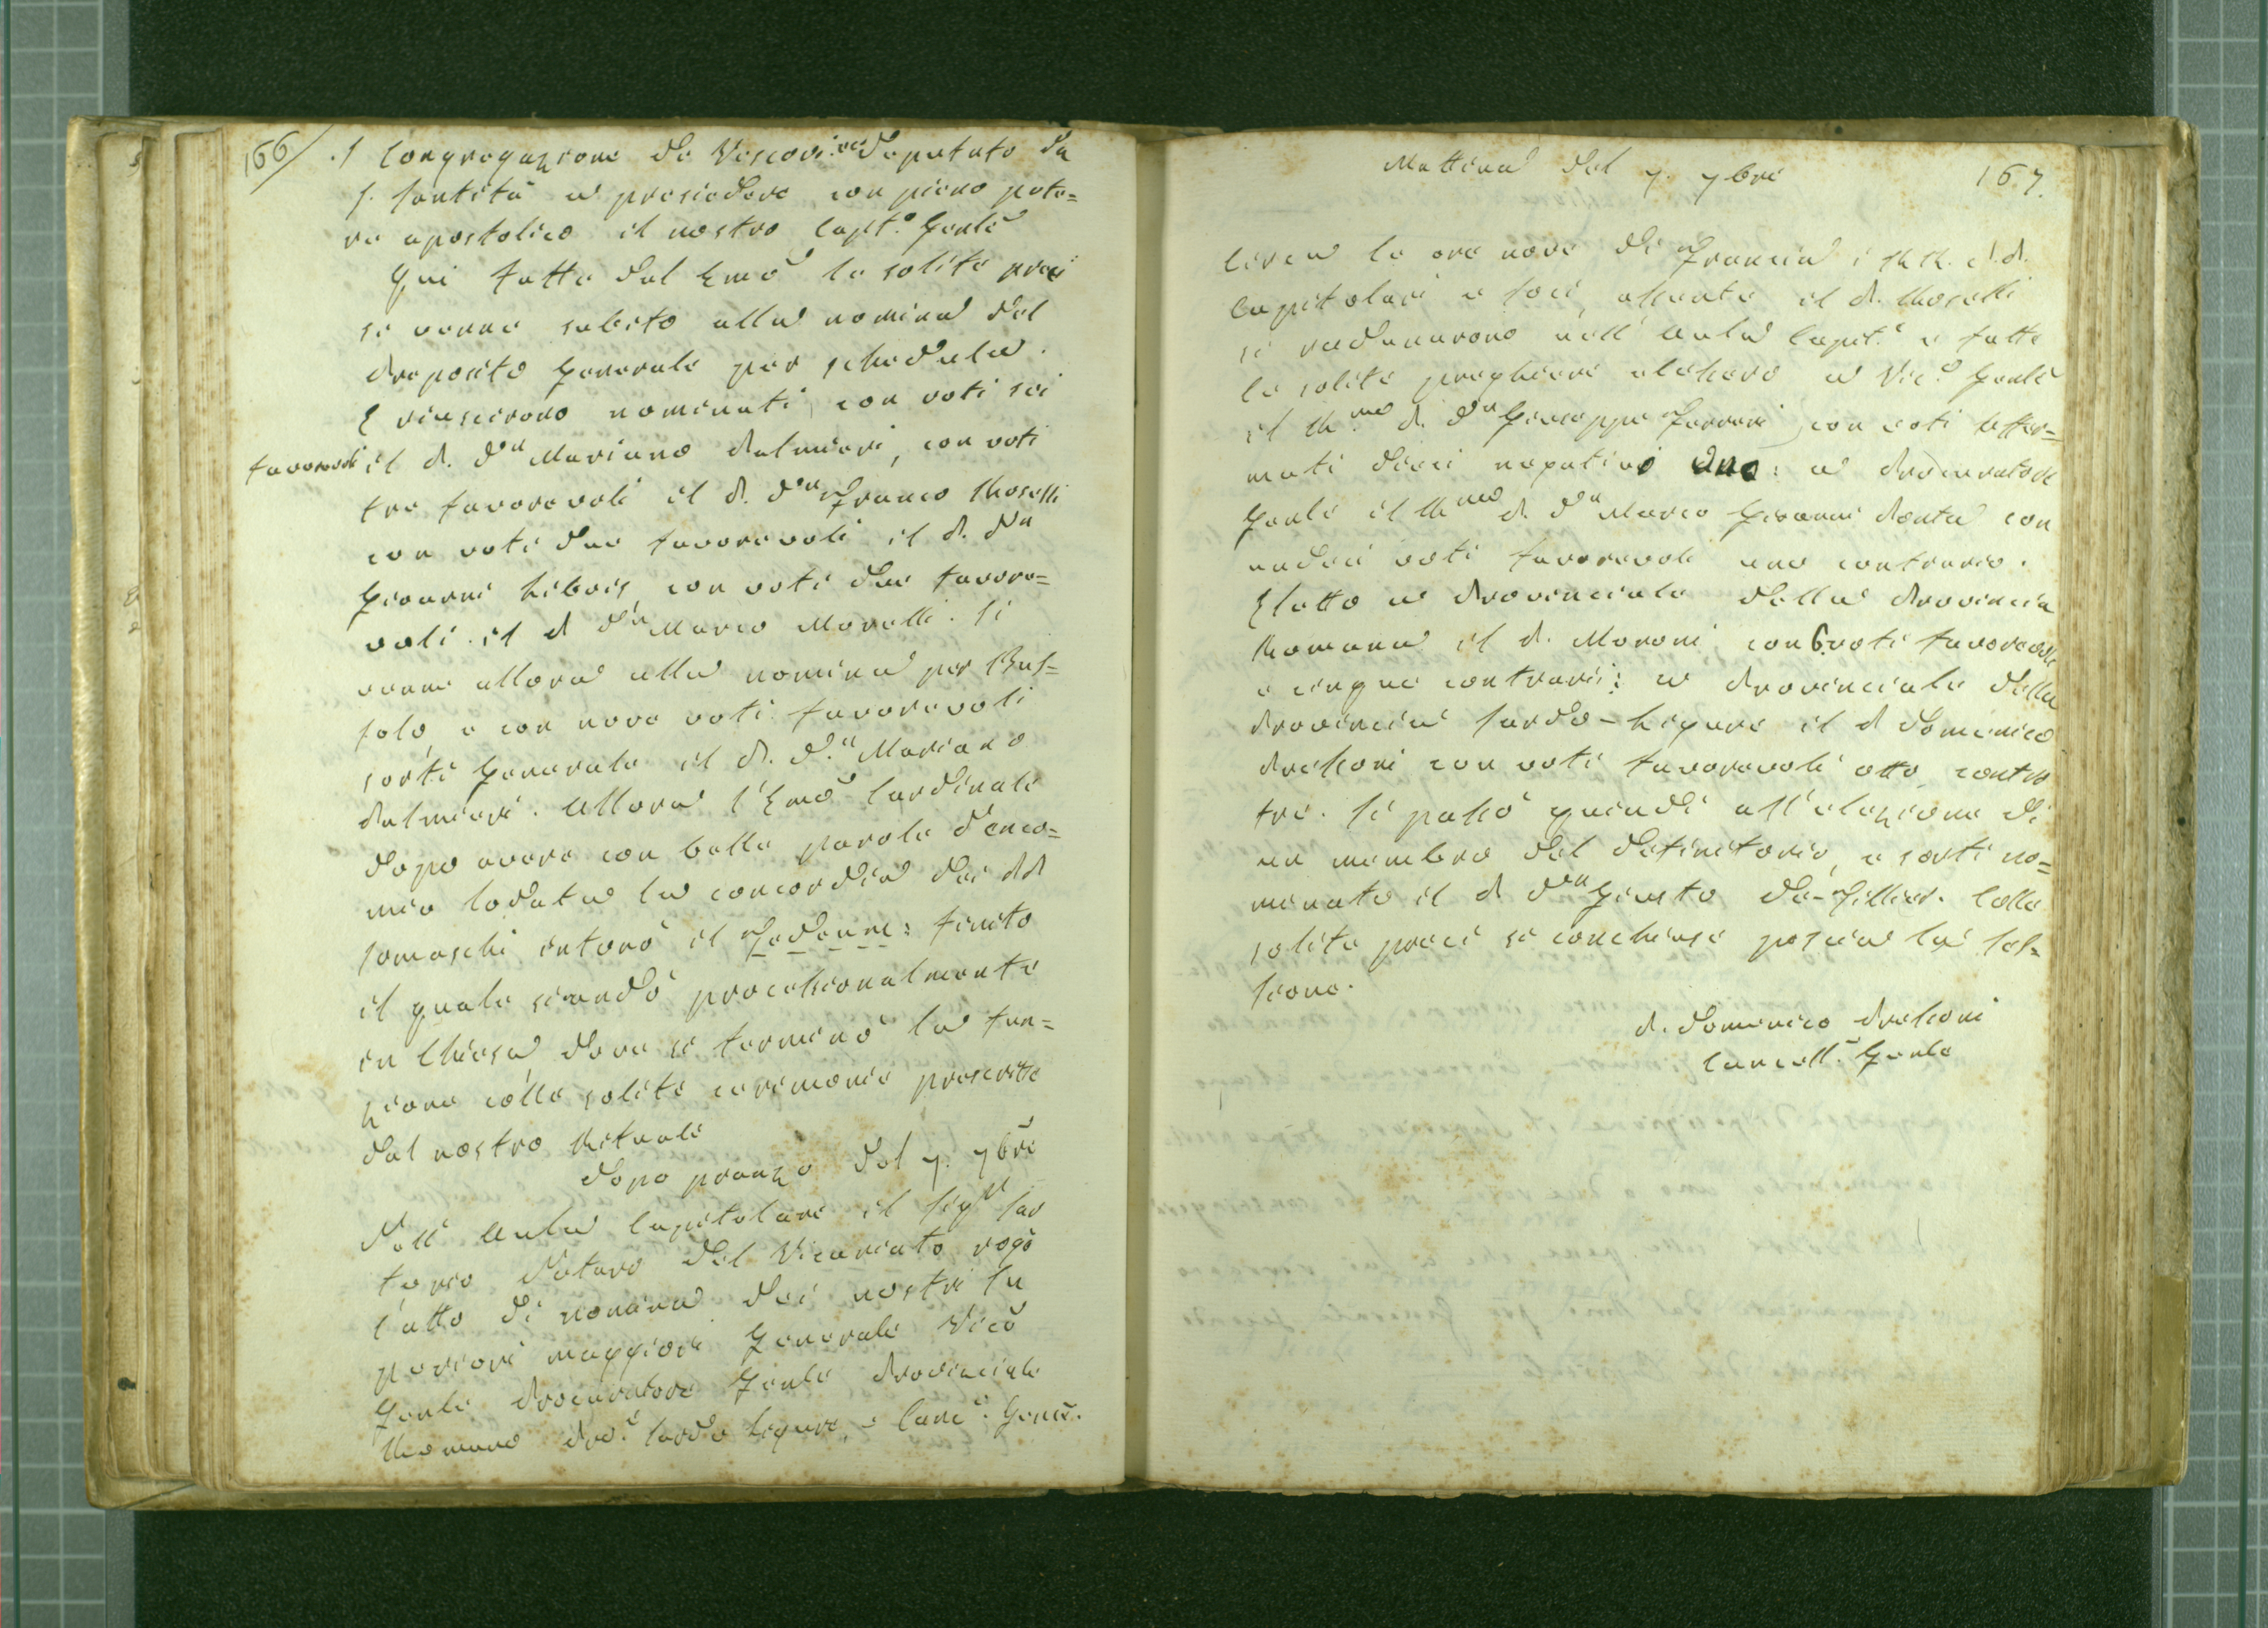 166/ . S Congregazione de Vescovi: ec deputato da
S. Santità a presiedere con pieno pote=
re apostolico il nostro Capit.° Genlē
Qui fatte dal Emō le solite preci
si venne subito alla nomina del
Preposito Generale per schedula.
E riuscirono nominati, con voti sei
favorevoli il P. D.n Mariano Palmieri, con voti
tre favorevoli il P. D.n Franco Roselli
con voti due favorevoli il P. D.n
Giovanni Libois, con voti due favore=
voli. il P D.n Marco Morelli. Si
venne allora alla nomina per Bus=
solo, e con nove voti favorevoli
sortì Generale il P. D.n Mariano
Palmieri. Allora l'Emō Cardinale
dopo avere con belle parole d'enco=
mio lodata la concordia dei PP
Somaschi intonò il Te Deum: finito
il quale si andò processionalmente
in Chiesa, dove si terminò la fun=
zione colle solite cerimonie prescritte
dal nostro Rituale
Dopo pranzo del 7. 7brē
Nell' Aula Capitolare il Sig.r Sar
torio Notaro del Vicariato rogò
l'atto di nomina dei nostri Su
periori maggiori Generale Vicō
Genle Procuratore Genle Provinciale
Romano Pro.e Sardo Ligure, e Canc.e Gener.
Mattina del 7. 7bre 167.
Circa le ore nove di Francia i RR. P.P.
Capitolari e Socj, assente il P. Roselli
si radunarono nell' Aula Capit.e e fatte
le solite preghiere elessero a Vic.° Genlē
il R.mo P. D.n Giuseppe Ferreri, con voti affer=
mati dieci negativi uno: a Procuratore
Genle il R.mo P. D.n Marco Giovanni Ponta con
undici voti favorevoli uno contrario.
Eletto a Provinciale della Provincia
Romana il P. Moroni con 6 voti favorevoli
e cinque contrarii: a Provinciale della
Provincia Sardo-Ligure il P Domenico
Pressoni con voti favorevoli otto, contro
tre. Si passò quindi all'elezione di
un membro del definitorio, e sortì no=
minato il P D.n Giusto De-Fillier. Colle
solite preci si conchiuse poscia la ses=
sione.
P. Domenico Pressoni
Cancell.e Genle